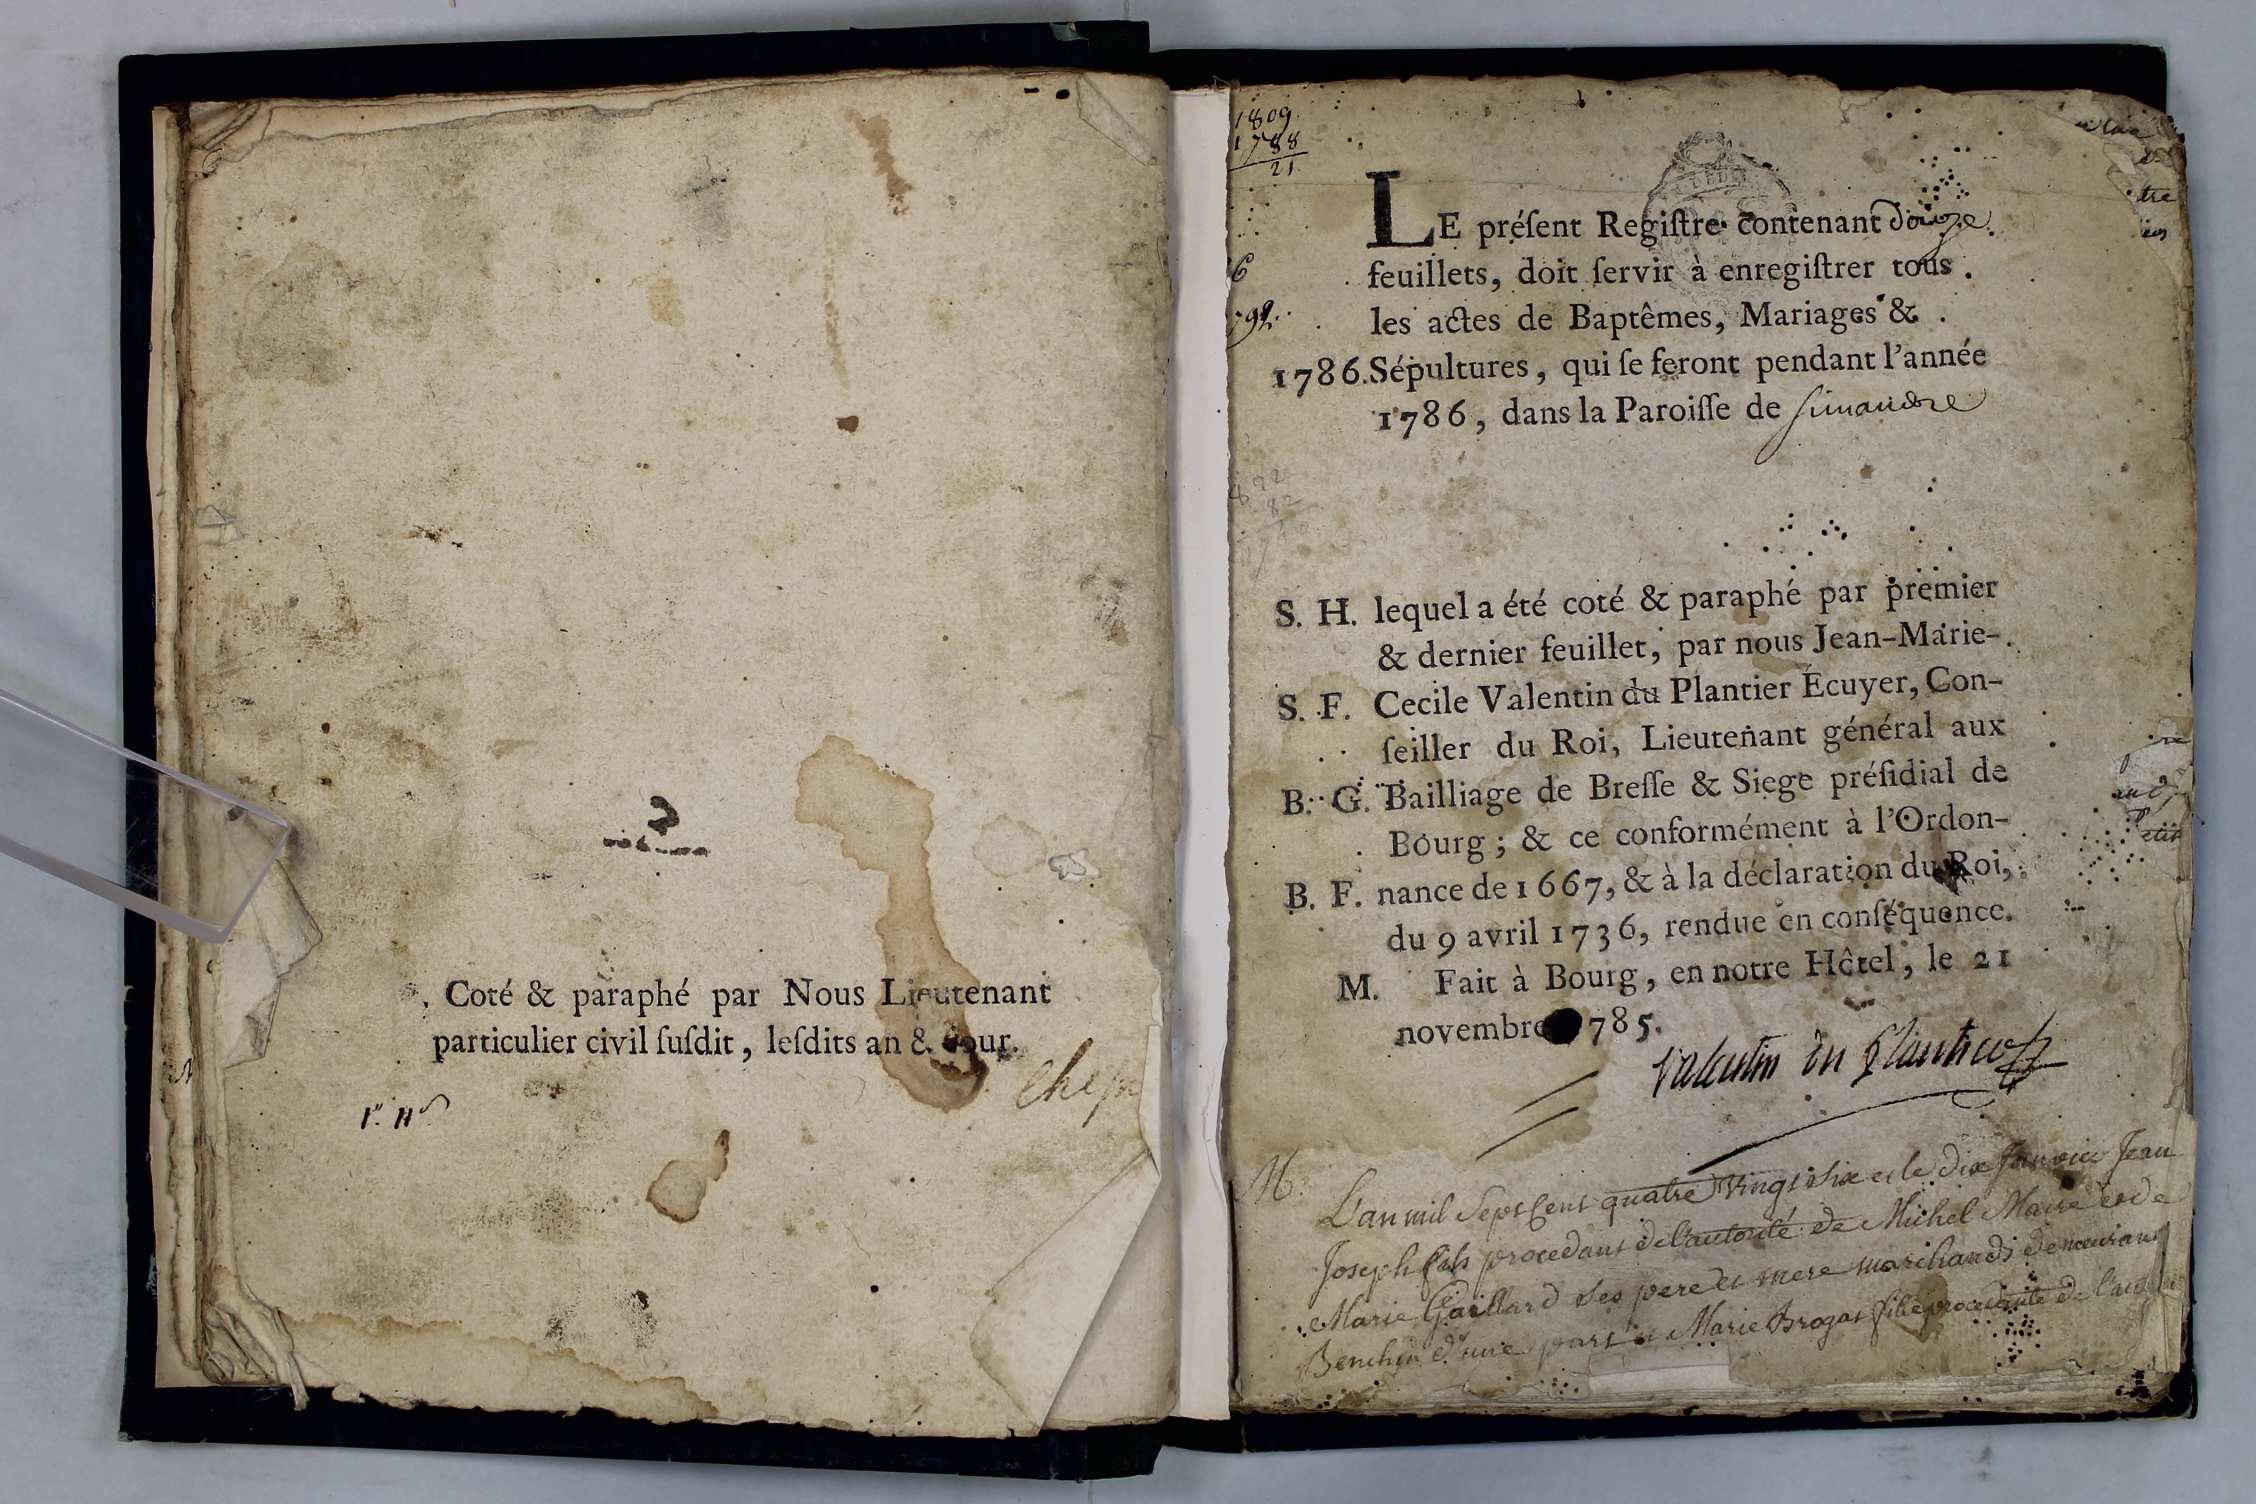 Coté & paraphé par Nous Lieutenant
particulier civil ſuſdit, leſdits an & jour.
1809.
1788
21
LE préſent Regiſtre contenant douze
feuillets, doit ſervir à enregiſtrer tous
les actes de Baptêmes, Mariages &
1786. Sépultures, qui ſe feront pendant l'année
1786, dans la Paroiſſe de Simandre
S. H. lequel a été coté & paraphé par premier
& dernier feuillet, par nous Jean-Marie-
S. F. Cecile Valentin du Plantier Écuyer, Con-
ſeiller du Roi, Lieutenant général aux
B. G. Bailliage de Breſſe & Siege préſidial de
Bourg; & ce conformément à l'Ordon-
B. F. nance de 1667, & à la déclaration du Roi,
du 9 avril 1736, rendue en conſéquence.
M. Fait à Bourg, en notre Hôtel, le 21
novembre 1785.
Valentin du Plantier
M.
L'an mil Sept Cent quatre vingt Six et le dix Janvier Jean
Joseph fils procedant de l'autorité de Michel Maire et de
Marie Gaillard Ses pere et mere marchands demeurant
d'une part et Marie Brogat fille procedante de